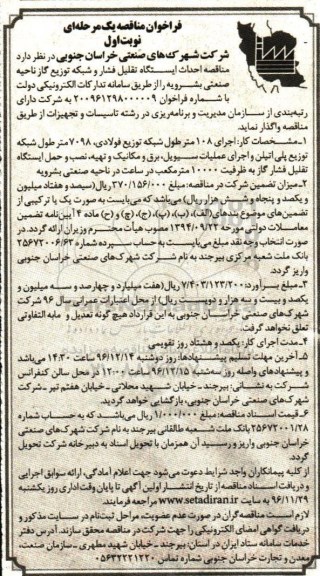 فراخوان مناقصه یک مرحله‌ای
نوبت اول
شرکت شهرک‌های صنعتی خراسان جنوبی در نظر دارد
مناقصه احداث ایستگاه تقلیل فشار و شبکه توزیع گاز ناحیه
صنعتی بشرویه را از طریق سامانه تدارکات الکترونیکی دولت
با شماره فراخوان ۲۰۰۹۶۱۲۹۸۰۰۰۰۰۹ به شرکت دارای
رتبه‌بندی از سازمان مدیریت و برنامه‌ریزی در رشته تاسیسات و تجهیزات از طریق
مناقصه واگذار نماید.
۱ـ مشخصات کار: اجرای ۱۰۸ متر طول شبکه توزیع فولادی، ۷۰۹۸ متر طول شبکه
توزیع پلی اتیلن و اجرای عملیات سیویل، برق و مکانیک و تهیه، نصب و حمل ایستگاه
تقلیل فشار گاز به ظرفیت ۱۰۰۰۰ متر مکعب در ساعت در ناحیه صنعتی بشرویه
۲ـ میزان تضمین شرکت در مناقصه: مبلغ ۳۷۰/۱۵۶/۰۰۰ ریال (سیصد و هفتاد میلیون
و یکصد و پنجاه و شش هزار ریال) می‌باشد که می‌بایست به صورت یک یا ترکیبی از
تضمین‌های موضوع بندهای (الف)، (ب)، (پ)، (ج)، (چ) و (ح) ماده ۴ آیین‌نامه تضمین
معاملات دولتی مورخه ۱۳۹۴/۰۹/۲۲ مصوب هیأت محترم وزیران ارائه گردد. در
صورت انتخاب وجه نقد مبلغ می‌بایست به حساب سپرده شماره ۲۵۶۷۲۰۰۶/۶۳
بانک ملت شعبه مرکزی بیرجند به نام شرکت شهرک‌های صنعتی خراسان جنوبی
واریز گردد.
۳ـ مبلغ برآورد: ۷/۴۰۳/۱۲۳/۲۰۰ ریال (هفت میلیارد و چهارصد و سه میلیون و
یکصد و بیست و سه هزار و دویست ریال) از محل اعتبارات عمرانی سال ۹۶ شرکت
شهرک‌های صنعتی خراسان جنوبی به این قرارداد هیچ گونه تعدیل و مابه التفاوتی
تعلق نخواهد گرفت.
۴ـ مدت اجرای کار: یکصد و هشتاد روز تقویمی
۵ـ آخرین مهلت تسلیم پیشنهادها: روز دوشنبه ۹۶/۱۲/۱۴ ساعت ۱۴:۳۰ می‌باشد
و پیشنهادهای واصله روز سه‌شنبه ۹۶/۱۲/۱۵ ساعت ۱۲:۰۰ در محل سالن کنفرانس
شرکت به نشانی: بیرجند ـ خیابان شهید محلاتی ـ خیابان هفتم تیر ـ شرکت
شهرک‌های صنعتی خراسان جنوبی، بازگشایی خواهد گردید.
۶ـ قیمت اسناد مناقصه: مبلغ ۱/۰۰۰/۰۰۰ ریال می‌باشد که به حساب شماره
۲۵۶۷۲۰۰۱/۲۸ بانک ملت شعبه طالقانی بیرجند به نام شرکت شهرک‌های صنعتی
خراسان جنوبی واریز و رسید آن همزمان با تحویل اسناد به دبیرخانه شرکت تحویل
گردد.
از کلیه پیمانکاران واجد شرایط دعوت می‌شود جهت اعلام آمادگی، ارائه سوابق اجرایی
و دریافت اسناد مناقصه از تاریخ انتشار اولین آگهی تا پایان وقت اداری روز یکشنبه
۹۶/۱۱/۲۹ به سایت www.setadiran.ir مراجعه فرمایند.
لازم است مناقصه‌گران در صورت عدم عضویت، مراحل ثبت‌نام در سایت مذکور و
دریافت گواهی امضای الکترونیکی را جهت شرکت در مناقصه محقق سازند. آدرس دفتر
خدمات سامانه ستاد ایران در استان: بیرجند ـ خیابان شهید مطهری ـ سازمان صنعت،
معدن و تجارت خراسان جنوبی شماره تماس ۰۵۶۳۲۲۲۱۲۲۰